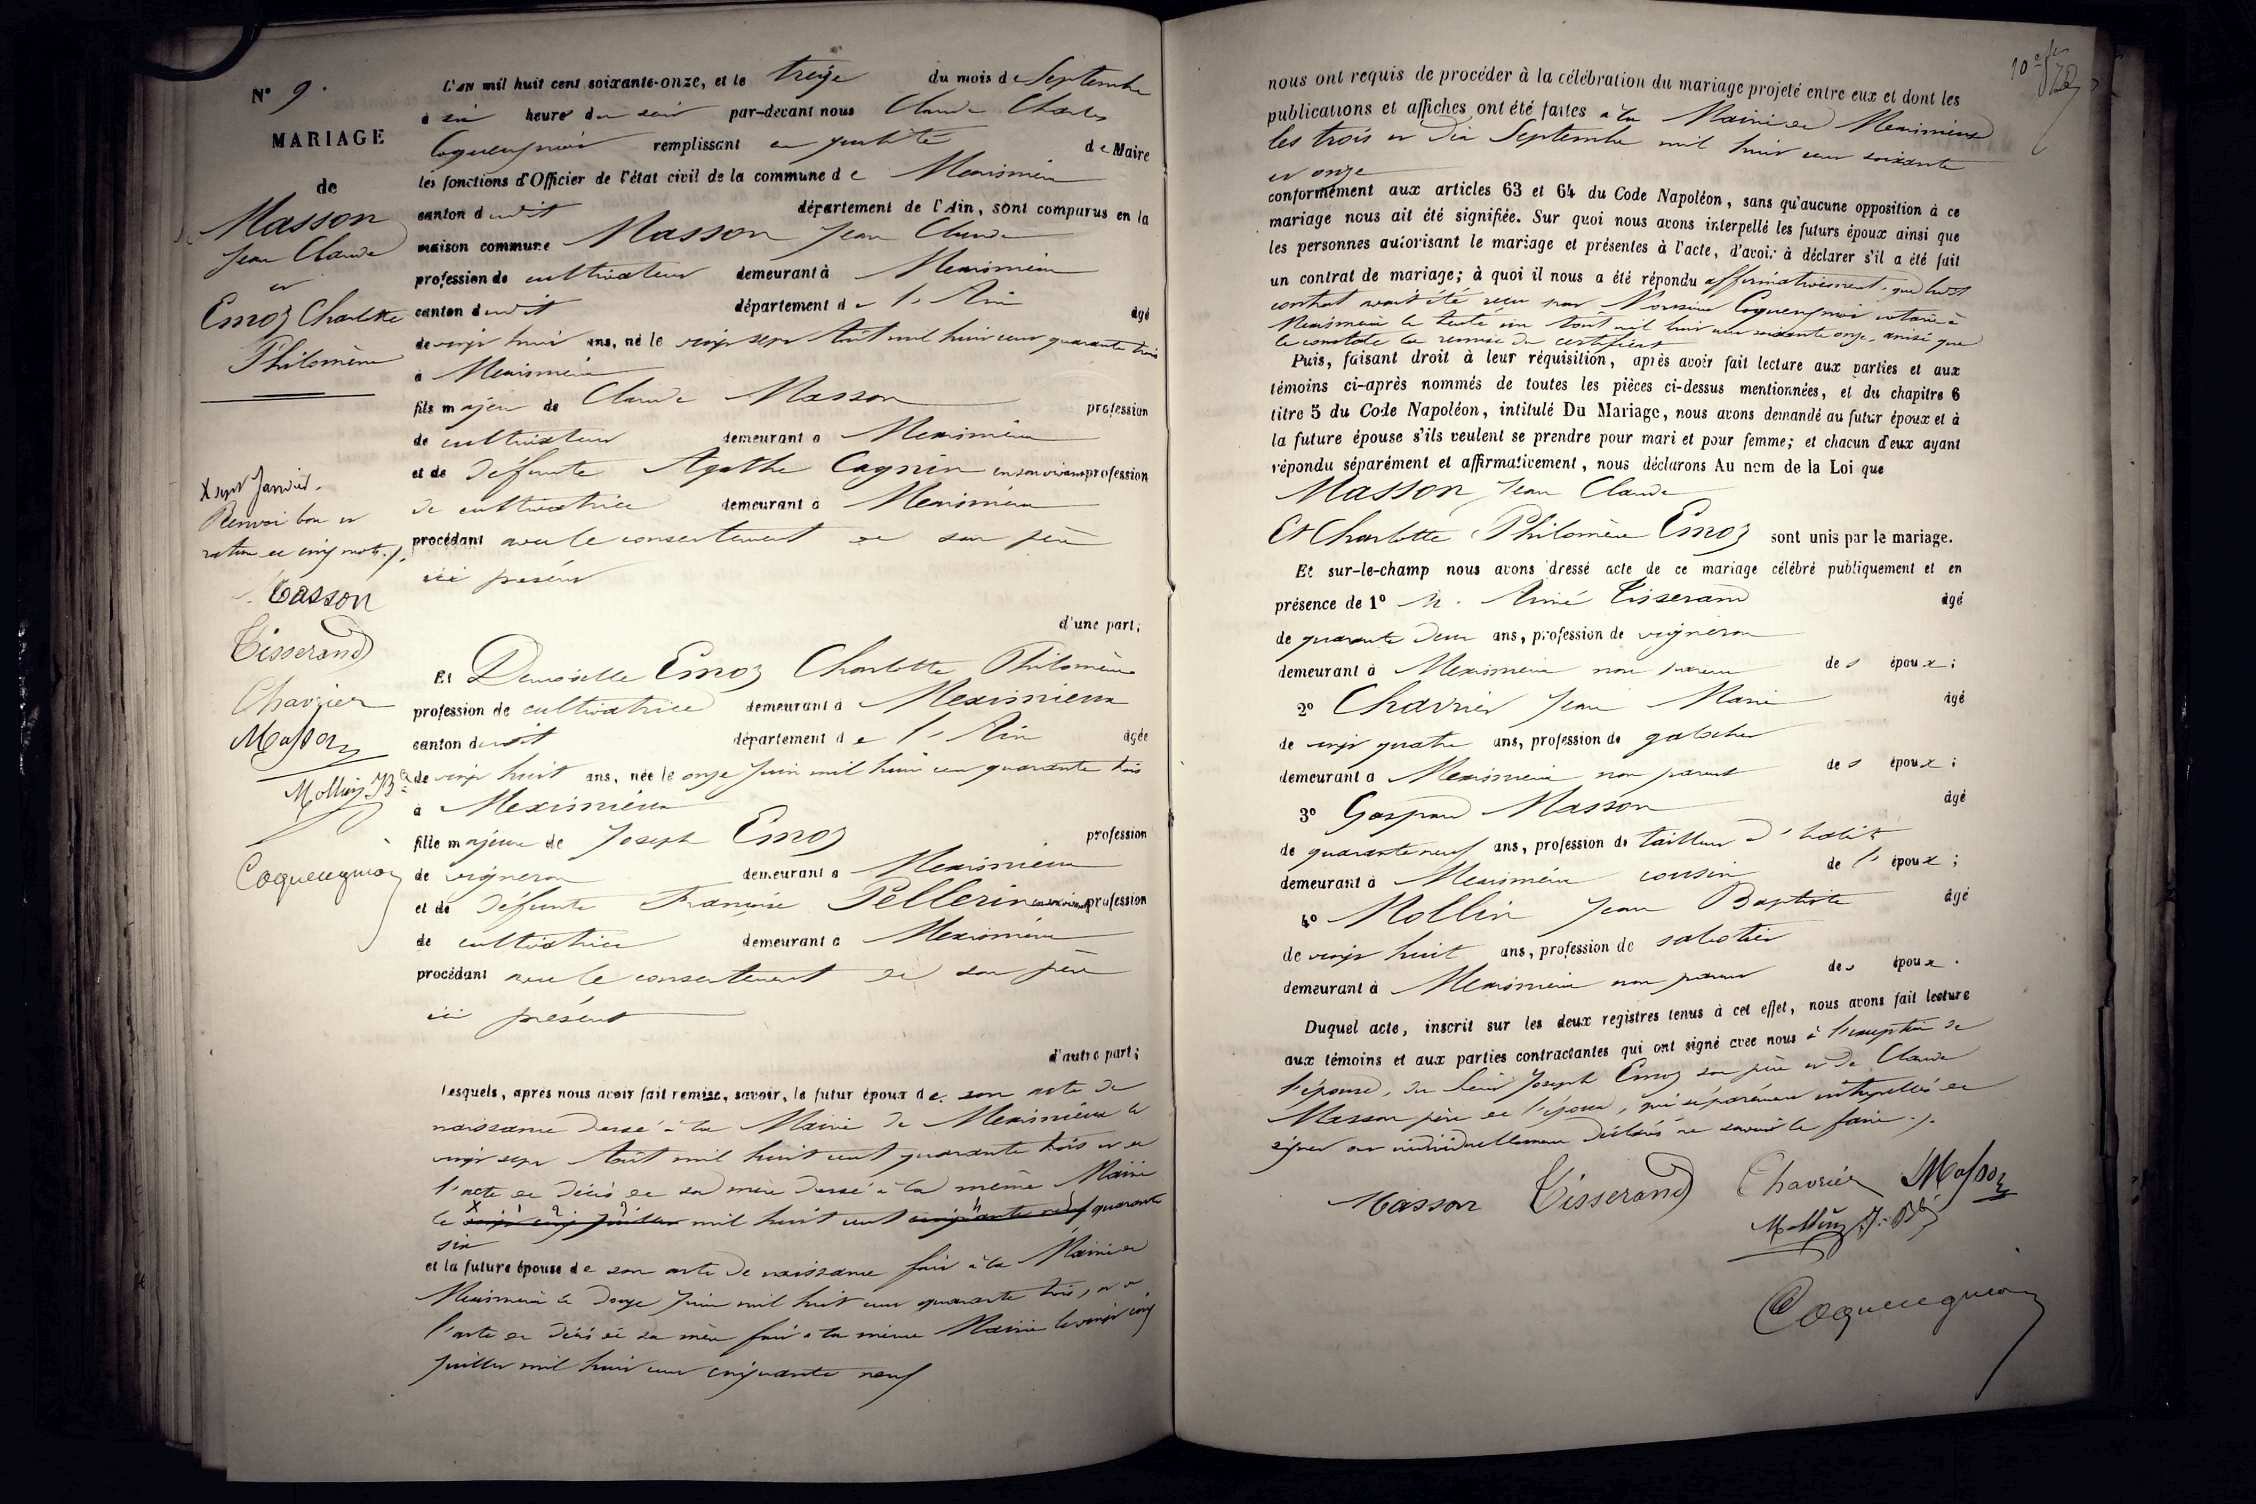 N° 9.
MARIAGE
de
Masson
Jean Claude
et
Emoz Charlotte
Philomène
X sept Janvier.
Renvoi bon et
rature de cinq mots ./.
Masson
Tisserand
Chavrier
Masson
Mollin JB
Coquengniot
L'an mil huit cent soixante-onze, et le treize du mois de Septembre
à six heure du soir par-devant nous Claude Charles
remplissant en qualité de Maire
les fonctions d'Officier de l'état civil de la commune de Meximieux
canton dudit département de l'Ain, sont comparus en la
maison commune Masson Jean Claude
profession de cultivateur demeurant à Meximieux
canton dudit département de l'Ain âgé
de vingt huit ans, né le vingt sept Août mil huit cent quarante trois
à Meximieux
fils majeur de Claude Masson profession
de cultivateur demeurant à Meximieux
et de défunte Agathe Cagnin en son vivant profession
de cultivatrice demeurant à Meximieux
procédant avec le consentement de son père
ici présent
d'une part;
Et Demoiselle Emoz Charlotte Philomène
profession de cultivatrice demeurant à Meximieux
canton dudit département de l'Ain âgée
de vingt huit ans, née le onze Juin mil huit cent quarante trois
à Meximieux
fille majeure de Joseph Emoz profession
de vigneron demeurant à Meximieux
et de défunte Françoise Pellerin en son vivant profession
de cultivatrice demeurant à Meximieux
procédant avec le consentement de son père
ici présent
d'autre part;
lesquels, après nous avoir fait remise, savoir, le futur époux de son acte de
naissance dressé à la Mairie de Meximieux le
vingt sept Août mil huit cent quarante trois et de
l'acte de décès de sa mère dressé à la même Mairie
le X vingt cinq Juillet mil huit cent cinquante neuf quarante
six
et la future épouse de son acte de naissance fait à la Mairie de
Meximieux le douze Juin mil huit cent quarante trois, et de
l'acte de décès de sa mère fait à la même Mairie le vingt cinq
Juillet mil huit cent cinquante neuf
nous ont requis de procéder à la célébration du mariage projeté entre eux et dont les
publications et affiches ont été faites à la Mairie de Meximieux
les trois et dix Septembre mil huit cent soixante
et onze
conformément aux articles 63 et 64 du Code Napoléon, sans qu'aucune opposition à ce
mariage nous ait été signifiée. Sur quoi nous avons interpellé les futurs époux ainsi que
les personnes autorisant le mariage et présentes à l'acte, d'avoir à déclarer s'il a été fait
un contrat de mariage; à quoi il nous a été répondu affirmativement, que ledit
contrat avait été reçu par notaire à
Meximieux le trente un Août mil huit cent soixante onze, ainsi que
le constate la remise du certificat
Puis, faisant droit à leur réquisition, après avoir fait lecture aux parties et aux
témoins ci-après nommés de toutes les pièces ci-dessus mentionnées, et du chapitre 6
titre 5 du Code Napoléon, intitulé Du Mariage, nous avons demandé au futur époux et à
la future épouse s'ils veulent se prendre pour mari et pour femme; et chacun d'eux ayant
répondu séparément et affirmativement, nous déclarons Au nom de la Loi que
Masson Jean Claude
Et Charlotte Philomène Emoz sont unis par le mariage.
Et sur-le-champ nous avons dressé acte de ce mariage célébré publiquement et en
présence de 1° M. Aimé Tisserand âgé
de quarante deux ans, profession de vigneron
demeurant à Meximieux non parent des époux;
2° Chavrier Jean Marie âgé
de vingt quatre ans, profession de galocher
demeurant à Meximieux non parent des époux;
3° Gaspard Masson âgé
de quarante neuf ans, profession de tailleur d'habits
demeurant à Meximieux cousin de l'époux;
4° Mollin Jean Baptiste âgé
de vingt huit ans, profession de sabotier
demeurant à Meximieux non parent des époux.
Duquel acte, inscrit sur les deux registres tenus à cet effet, nous avons fait lecture
aux témoins et aux parties contractantes qui ont signé avec nous à l'exception de
l'épouse, du Sieur Joseph Emoz son père et de Claude
Masson père de l'époux, qui séparément interpellés de
signer ont individuellement déclaré ne savoir le faire ./.
Masson Tisserand Chavrier Masson
Mollin J. Bte